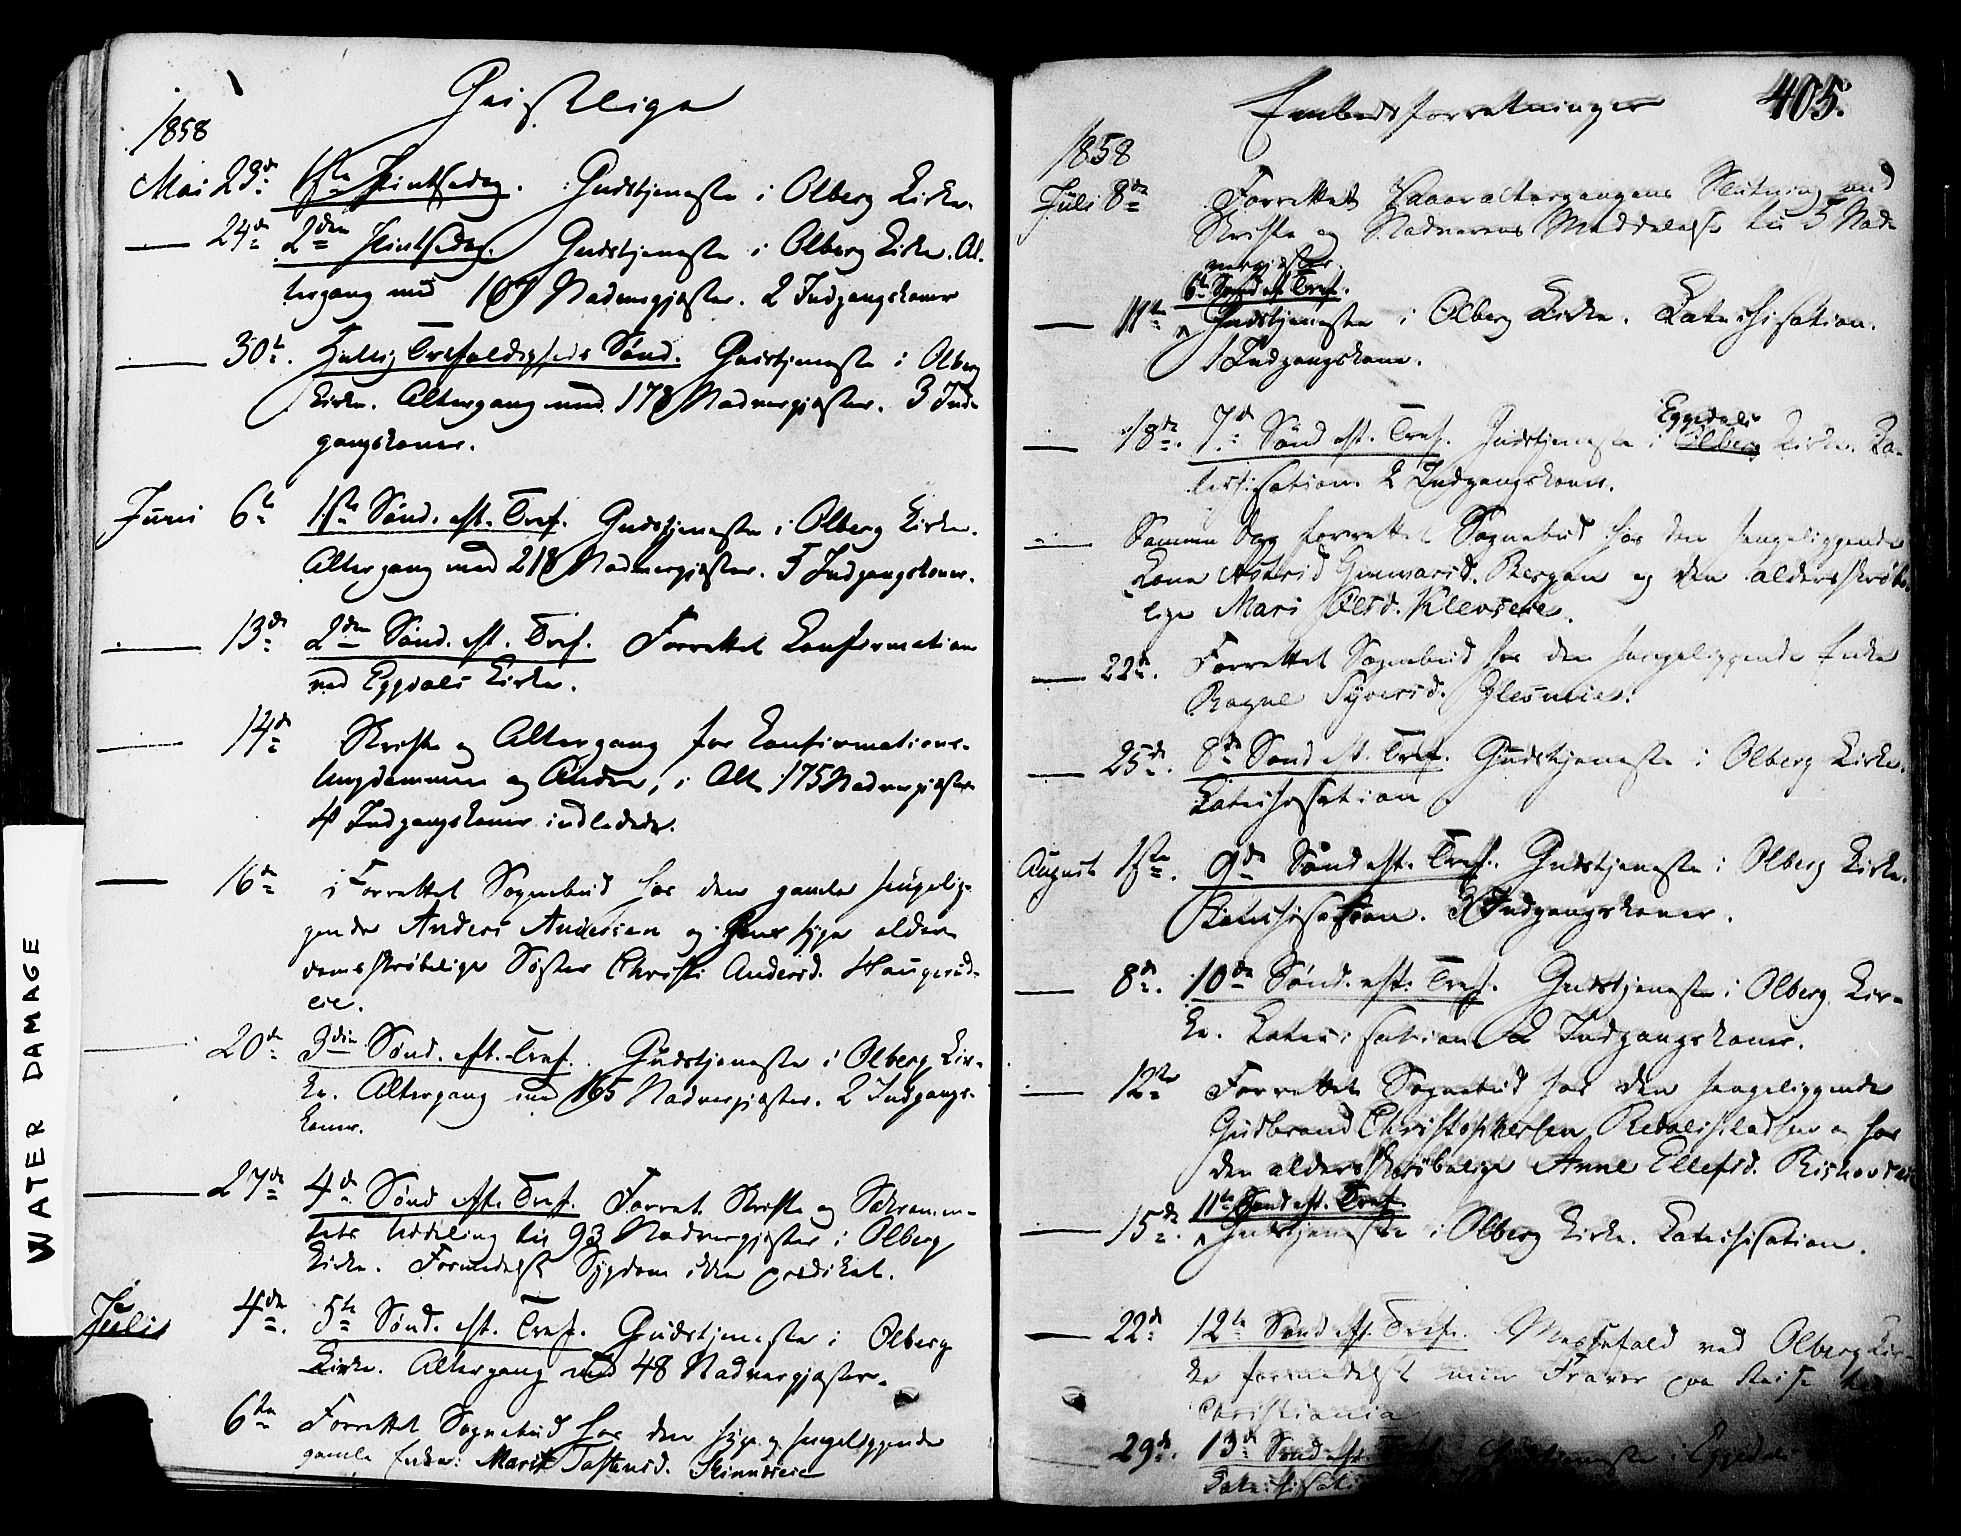 Geistlige
1858
Mai 23de 1ste Pintsedag. Gudstjeneste i Olberg Kirke.
24de 2den Pintsedag. Gudstjeneste i Olberg Kirke. Al-
tergang med Nadvergjæster. 2 Indgangskoner
30te. Hellig Trefoldigheds Sønd. Gudstjeneste i Olberg
Kirke. Altergang med 178 Nadvergjæster. 3 Ind-
gangskoner.
Juni 6te 1ste Sønd. eft. Tref. Gudstjeneste i Olberg Kirke.
Altergang med 218 Nadvergjæster. 5 Indgangskoner.
13de 2den Sønd. eft. Tref. Forrettet Konfirmation
ved Eggedals Kirke.
14de Skrifte og Altergang for Konfirmations-
ungdommen og Andre, i Alt 175 Nadvergjæster
4 Indgangskoner indledede.
16de Forrettet Sognebud hos den gamle sengelig-
gende Anders Andersen og hans syge alder-
domsskrøbelige Søster Christi Andersd. Haugerud-
eie.
20de 3die Sønd. eft. Tref. Gudstjeneste i Olberg Kir-
ke. Altergang med 165 Nadvergjæster. 2 Indgangs-
koner.
27de 4de Sønd eft. Tref. Forret. Skrifte og Sakramen-
tets Uddeling til 93 Nadvergjæster i Olberg
Kirke. Formedelst Sygdom ikke prediket.
Juli 4de. 5te Sønd. eft. Tref. Gudstjeneste i Olberg
Kirke. Altergang med 48 Nadvergjæster.
6te Forrettet Sognebud hos den syge og sengeliggende
gamle Enke: Marit Tostensd. Skinnseie
WATER DAMAGE
Embedsforretninger 405.
1858
Juli 8de Forrettet Vaaraltergangens Slutning med
Skrifte og Nadverens Meddelelse til 5 Nad-
vergjæster.
6te Sønd eft Tref.
11te Gudstjeneste i Olberg Kirke. Katechisation.
1 Indgangskone.
Eggedals
18de. 7de Sønd eft. Tref. Gudstjeneste i Olberg Kirke. Ka-
techisation. 2 Indgangskoner.
Samme Dag forrettet Sognebud hos den sengeliggende
Kone Astrid Gunnarsd. Bergan og den aldersskrøbe-
lige Mari Olsd. Klevseie.
22de. Forrettet Sognebud hos den sengeliggende Enke
Ragne Syversd. Glesneeie.
25de. 8de Sønd eft. Tref. Gudstjeneste i Olberg Kirke.
Katechisation
August 1ste. 9de Sønd eft. Tref. Gudstjeneste i Olberg Kirke.
Katechisation. 3 Indgangskoner.
8de. 10de Sønd. eft. Tref. Gudstjeneste i Olberg Kir-
ke. Katechisation 2 Indgangskoner.
12te Forrettet Sognebud hos den sengeliggende
Gudbrand Christophersen og hos
den aldersskrøbelige Anne Ellefsd.
11te Sønd eft. Tref.
15de. Gudstjeneste i Olberg Kirke. Katechisation.
22de 12te Sønd eft. Tref. Messefald ved Olberg Kir-
ke formedelst min Fravær paa Reise
Christiania
29de. 13de Sønd eft. Tref. Gudstjeneste i Eggedals